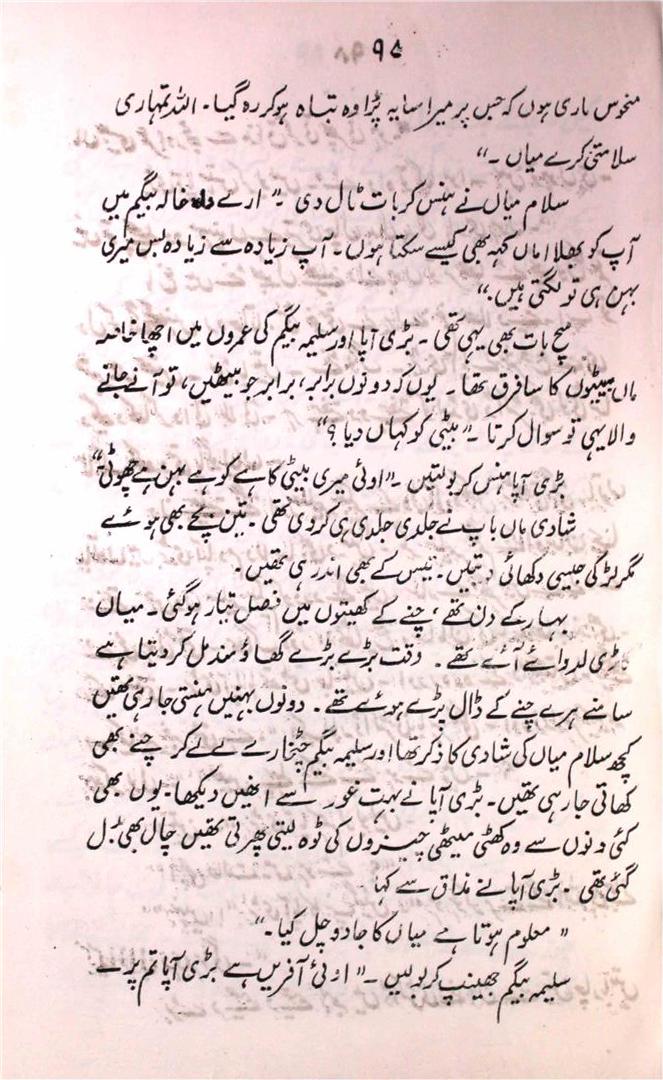 ۹۵
منحوس ماری ہوں کہ جس پر میرا سایہ پڑا وہ تباہ ہو کر رہ گیا۔ اللہ تمہاری
سلامتی کرے میاں ۔"
سلام میاں نے ہنس کر بات ٹال دی ۔" ارے واہ خالہ بیگم میں
آپ کو بھلا اماں کہہ بھی کیسے سکتا ہوں۔ آپ زیادہ سے زیادہ بس میری
بہن ہی تو لگتی ہیں۔"
سچ بات بھی یہی تھی ۔ بڑی آپا اور سلیمہ بیگم کی عمروں میں اچھا خاصہ
ماں بیٹیوں کا سا فرق تھا۔ یوں کہ دونوں برابر، برابر جو بیٹھیں، تو آنے جانے
والا یہی تو سوال کرتا ۔" بیٹی کو کہاں دیا ؟"
بڑی آپا ہنس کر بولتیں ۔" اوئی میری بیٹی کاہے کو ہے بہن ہے چھوٹی"
شادی ماں باپ نے جلدی جلدی ہی کر دی تھی ۔ تین بچے بھی ہوئے
مگر لڑکی جیسی دکھائی دیتیں۔ تیس کے بھی اندر ہی تھیں۔
بہار کے دن تھے، چنے کے کھیتوں میں فصل تیار ہو گئی ۔ میاں
گاڑی لدوائے آئے تھے ۔ وقت بڑے بڑے گھاؤ مندمل کر دیتا ہے
سامنے ہرے چنے کے ڈال پڑے ہوئے تھے ۔ دونوں بہنیں ہنستی جا رہی تھیں
کچھ سلام میاں کی شادی کا ذکر تھا اور سلیمہ بیگم چٹخارے لے لے کر چنے بھی
کھاتی جا رہی تھیں۔ بڑی آپا نے بہت غور سے انھیں دیکھا۔ یوں بھی
کئی دنوں سے وہ کھٹی میٹھی چیزوں کی ٹوہ لیتی پھرتی تھیں چال بھی بدل
گئی تھی ۔ بڑی آپا نے مذاق سے کہا
" معلوم ہوتا ہے میاں کا جادو چل گیا ۔"
سلیمہ بیگم جھینپ کر بولیں ۔" اوئی آفریں ہے بڑی آپا تم پر۔ اے